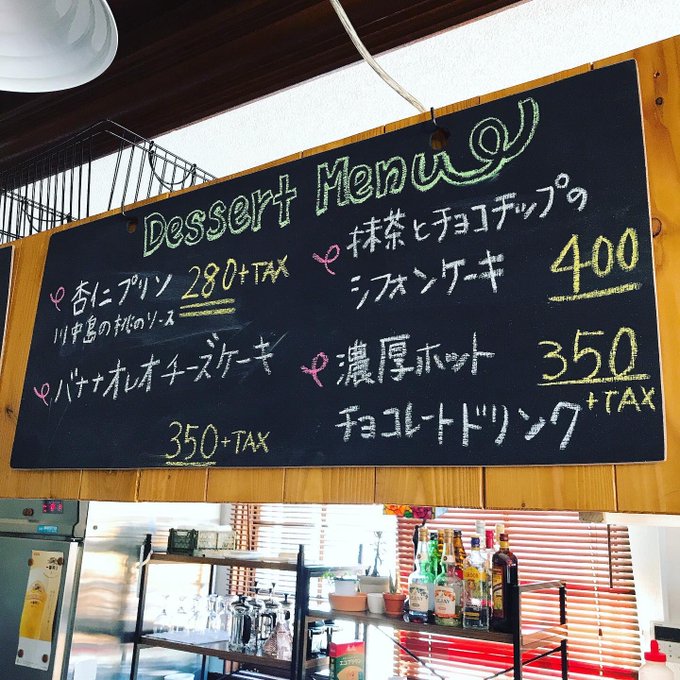 Dessert Menu
杏仁プリン 280+TAX
川中島の桃のソース
バナナオレオチーズケーキ
350+TAX
抹茶とチョコチップの
シフォンケーキ 400
濃厚ホット 350
チョコレートドリンク +TAX